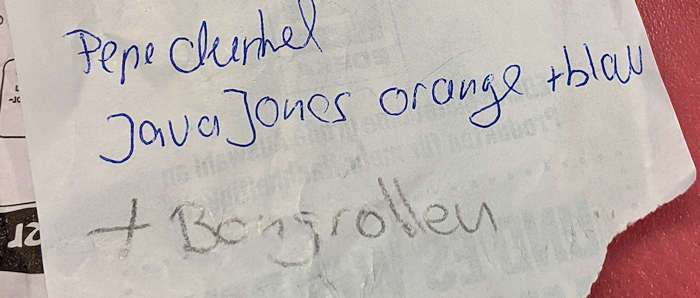 Pepe dunkel
Java Jones orange + blau
+ Bongrollen